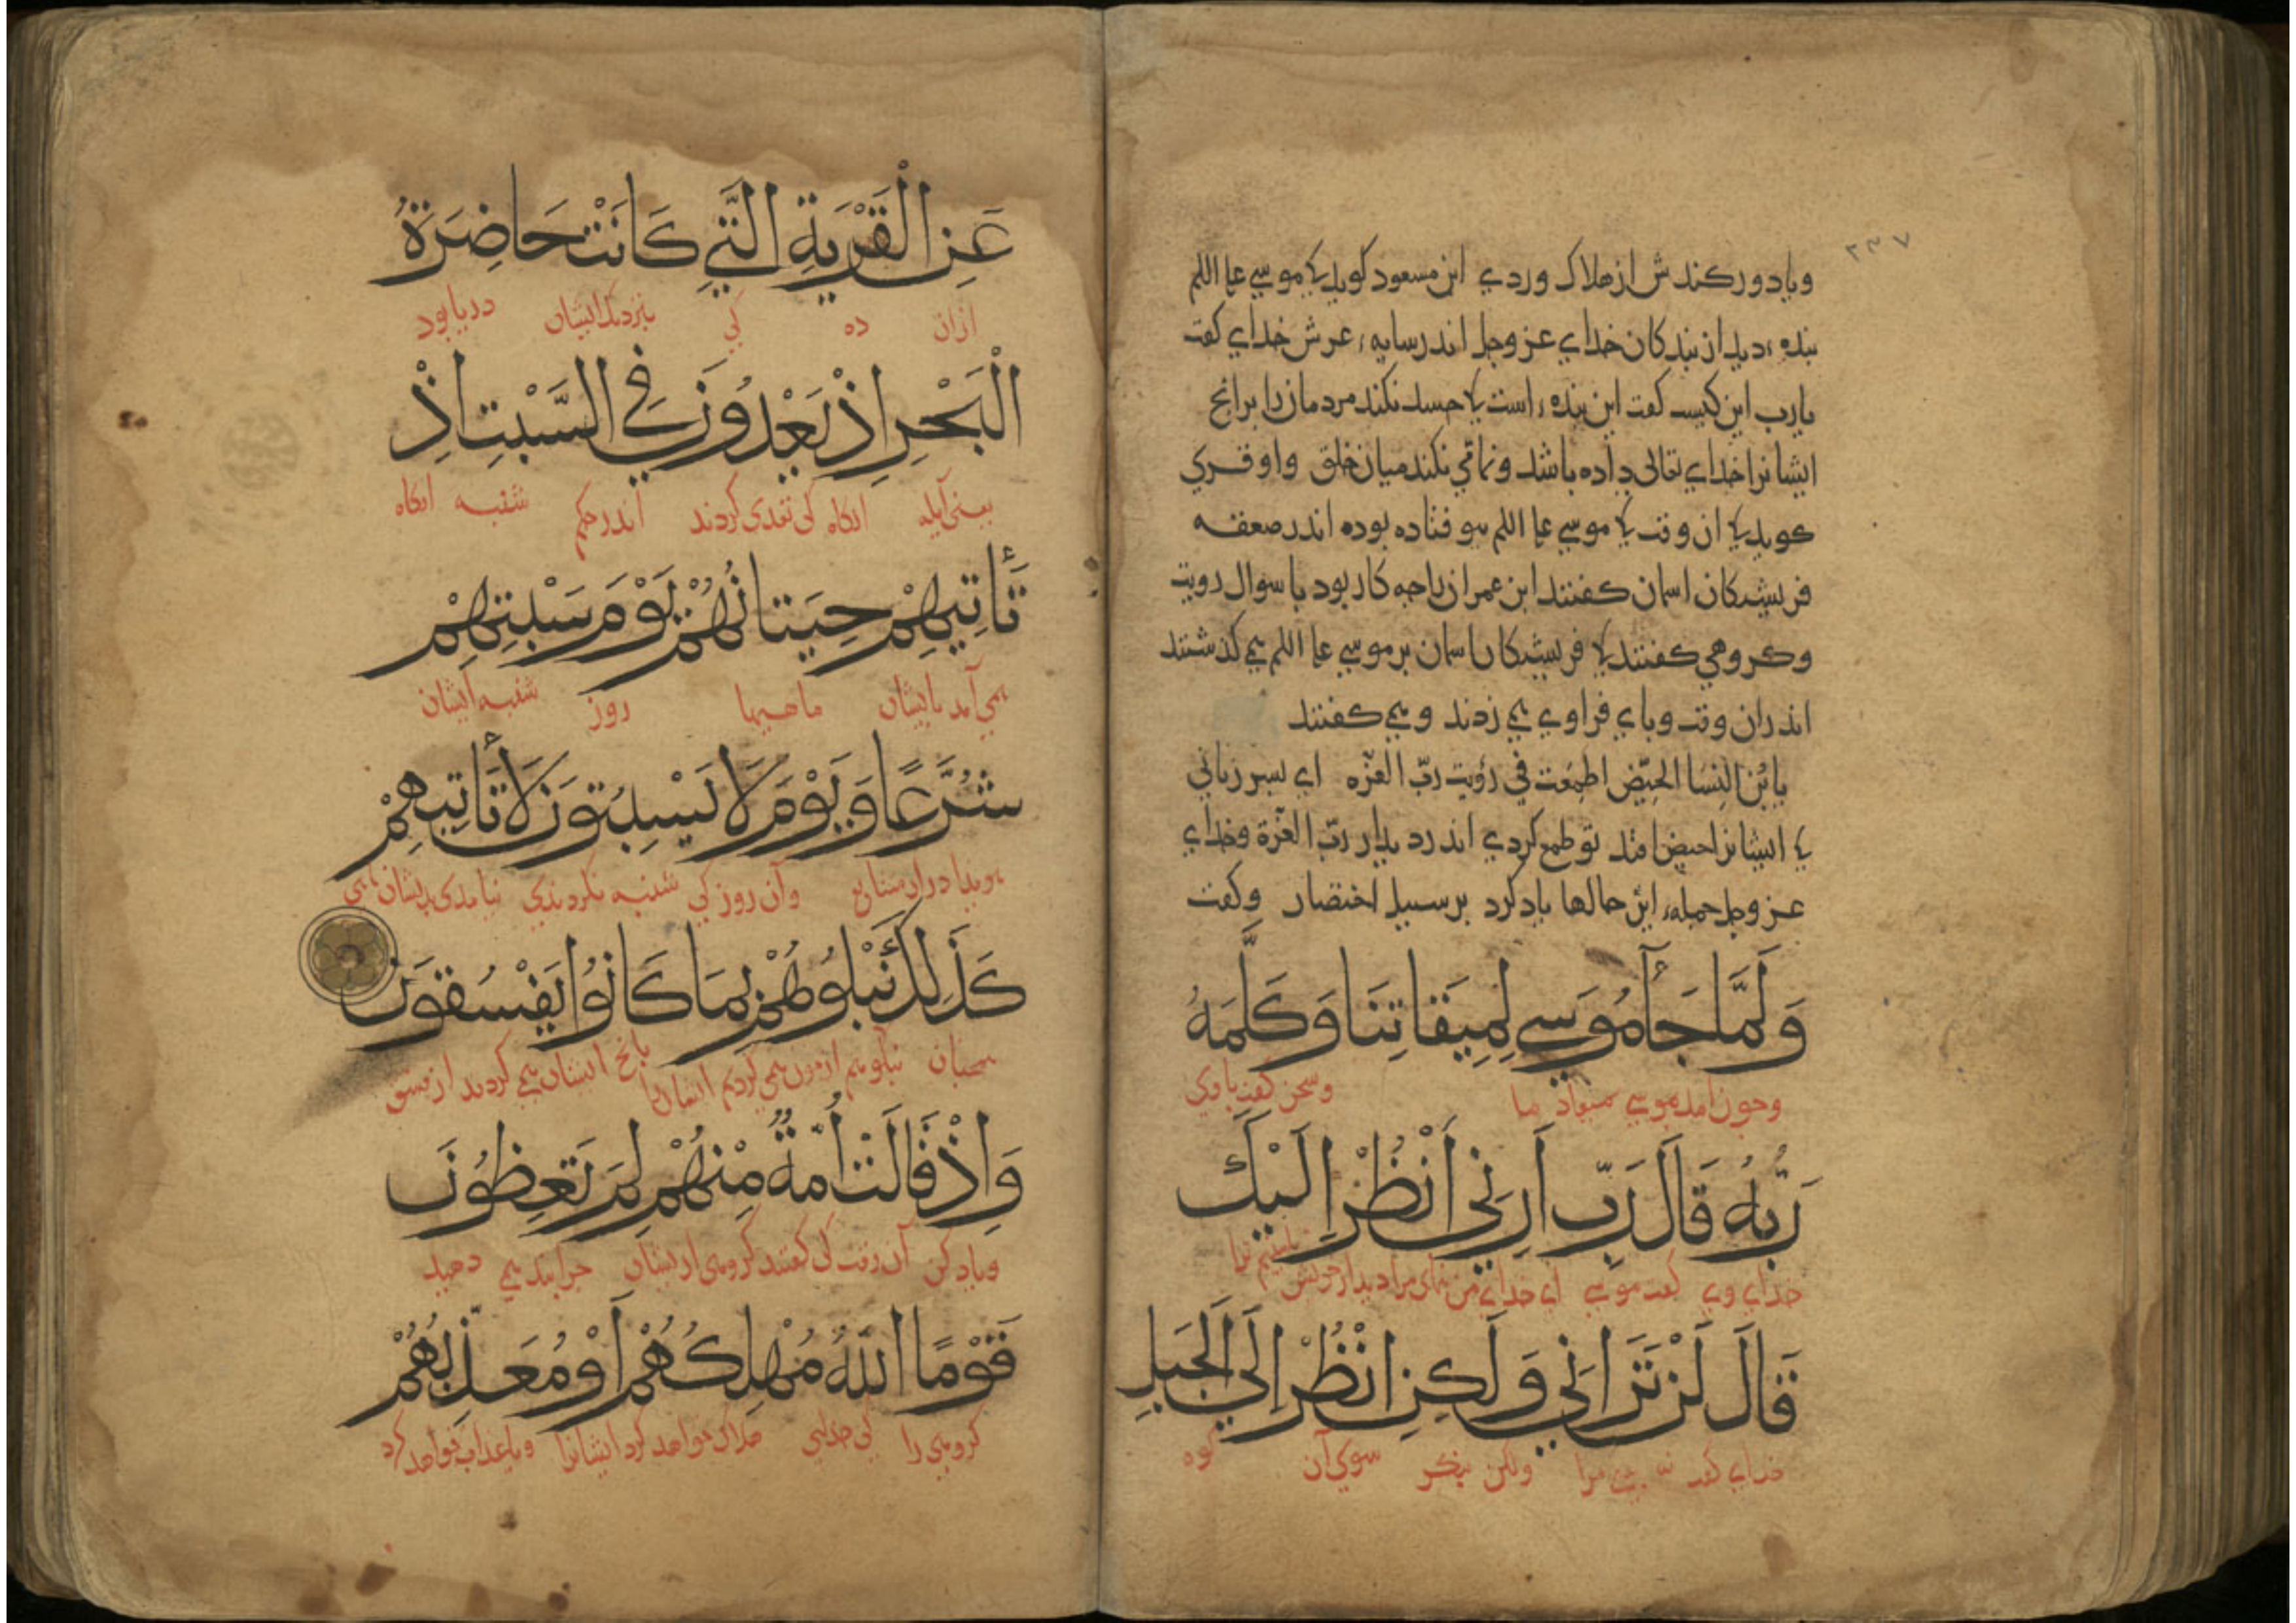 ٢٣٧
وباد دور کندش از هلاک وردي ابن مسعود کوید کا موسي علم
بنده دید از بندکان خداي عز وجل اندر سایه عرش خداي کفت
یارب این کیست کفت این بنده است کا حسد نکند مردمان را برانج
ایشانرا خداي تعالی داده باشد ونمامي نکند میان خلق واو قري
کوید کا ان وقت کا موسي فتاده بوده اندر صعقه
فریشتکان اسمان کفتند ابن عمران را چه کار بود با سوال رویت
وکروهي کفتند کا فریشتکان اسمان بر موسي مي کذشتند
اندران وقت وپاي فراوي مي زدند ومي کفتند
یا بْن النِسَا الحِیّض اطمِعت في رؤیت ربّ العزّه اي پسر زناني
کا ایشانرا حیض افتد تو طمع کردي اندر دیدار ربّ العزّة وخداي
عز وجل جمله این حالها یاد کرد بر سبیل اختصار وکفت
وَلَمَّا جَآءَ مُوسَي لِمِيقَاتِنَا وَكَلَّمَهُ
وچون امد موسي میعاد ما وسخن کفت باوي
رَبُّهُ قَالَ رَبِّ اَرِنِي اَنْظُرْ اِلَيْكَ
خداي وي کفت موسي اي خداي من نماي مرا دیدار خویش تا بینم ترا
قَالَ لَنْ تَرَانِي وَلَكِنِ انْظُرْ اِلَي الْجَبَلِ
خداي کفت نه بیني مرا ولکن بنکر سوي آن کوه
عَنِ الْقَرْيَةِ الَّتِي كَانَتْ حَاضِرَةَ
ازان ده کي بنزدیک ایشان دریا بود
الْبَحْرِ اِذْ يَعْدُونَ فِي السَّبْتِ اِذْ
یعنی آیله انکاه کی تعدی کردند اندر حکم شنبه انکاه
تَأْتِيهِمْ حِيتَانُهُمْ يَوْمَ سَبْتِهِمْ
می آمد بایشان ماهیها روز شنبه ایشان
شُرَّعًا وَيَوْمَ لَا يَسْبِتُونَ لَا تَأْتِيهِمْ
وآن روز کي شنبه نکردندي نیامدی بدیشان
كَذَلِكَ نَبْلُوهُمْ بِمَا كَانُوا يَفْسُقُونَ
همچنان ازمون همي کردیم ایشانرا بانج ایشان مي کردند از فسق
وَاِذْ قَالَتْ اُمَّةٌ مِنْهُمْ لِمَ تَعِظُونَ
ویاد کن آن وقت کی کفتند کروهی از یشان چرا پند مي دهید
قَوْمًا اللّٰهُ مُهْلِكُهُمْ اَوْ مُعَذِّبُهُمْ
کروهي را کی خداي هلاک خواهد کرد ایشانرا ویا عذاب خواهد کرد